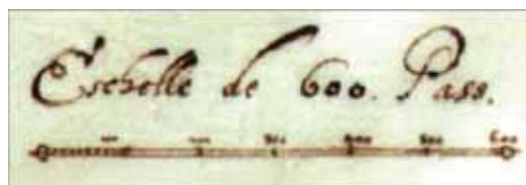 Eschelle de 600. Pass.
100 200 300 400 500 600